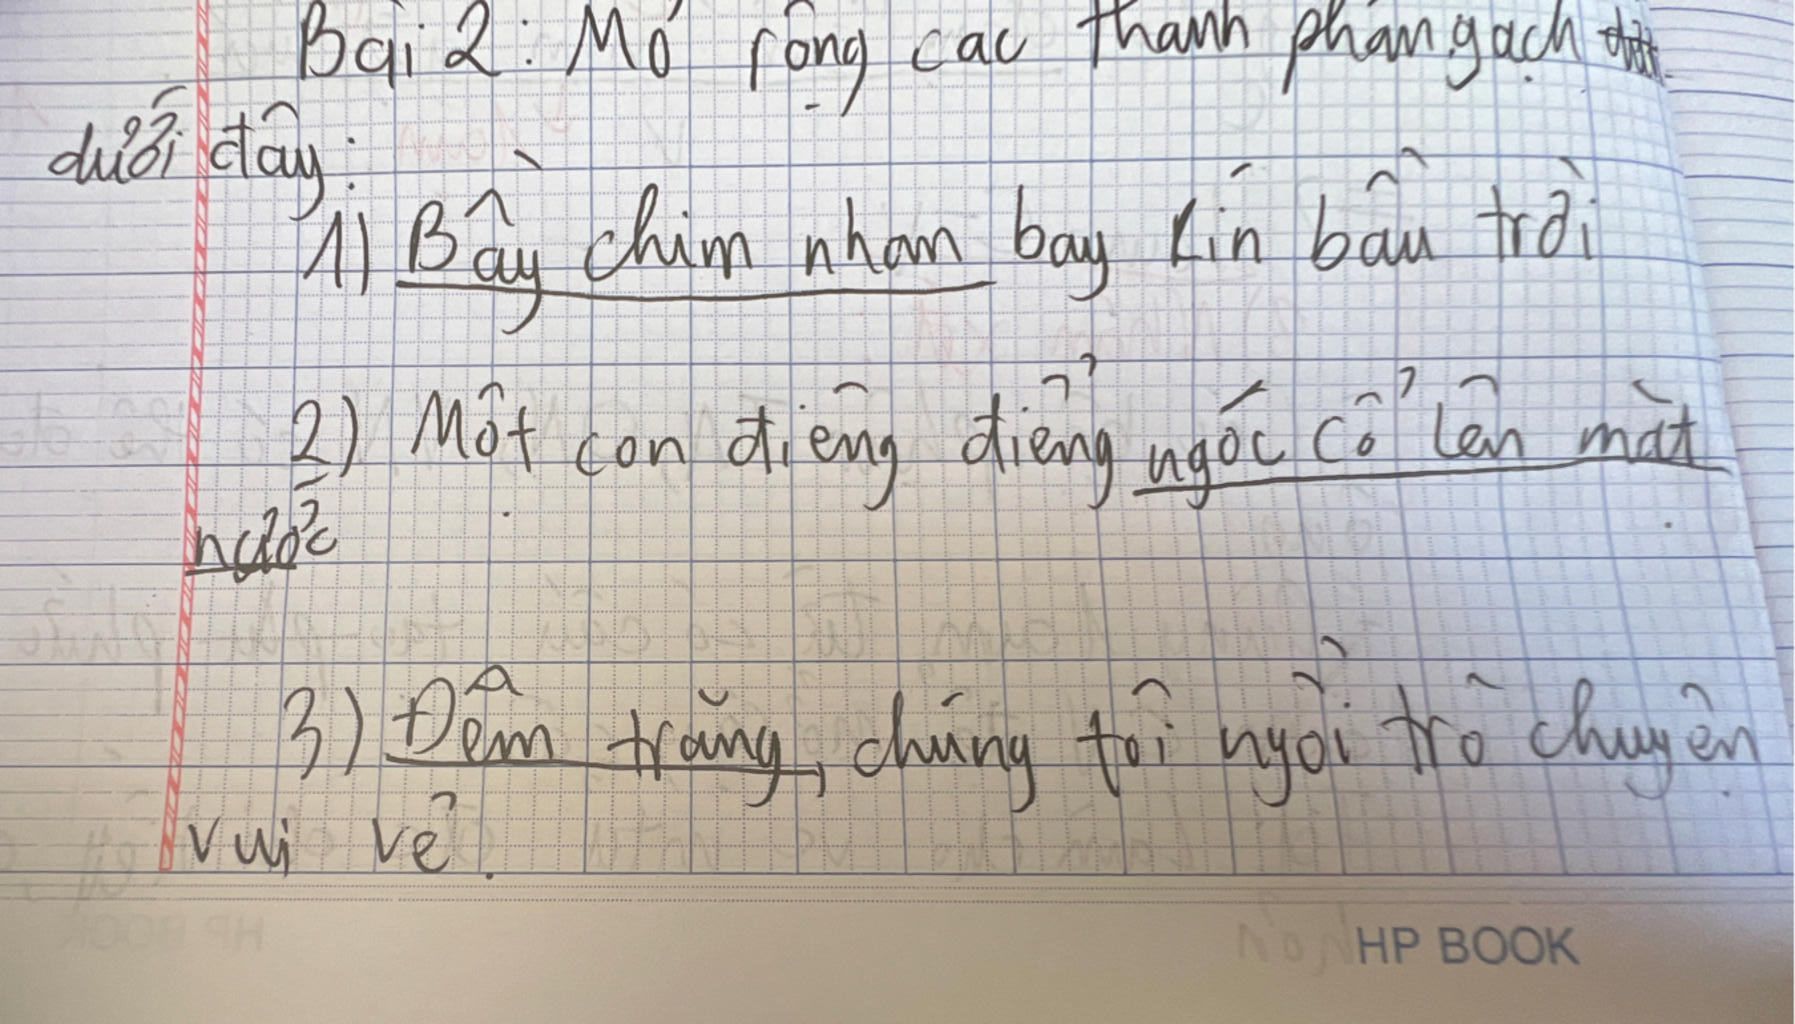 Bài 2: Mở rộng các thành phần gạch
dưới đây:
1) Bầy chim nhạn bay kín bầu trời
2) Một con điêng điểng ngóc cổ lên mặt
nước
3) Đêm trăng, chúng tôi ngồi trò chuyện
vui vẻ.
HP BOOK